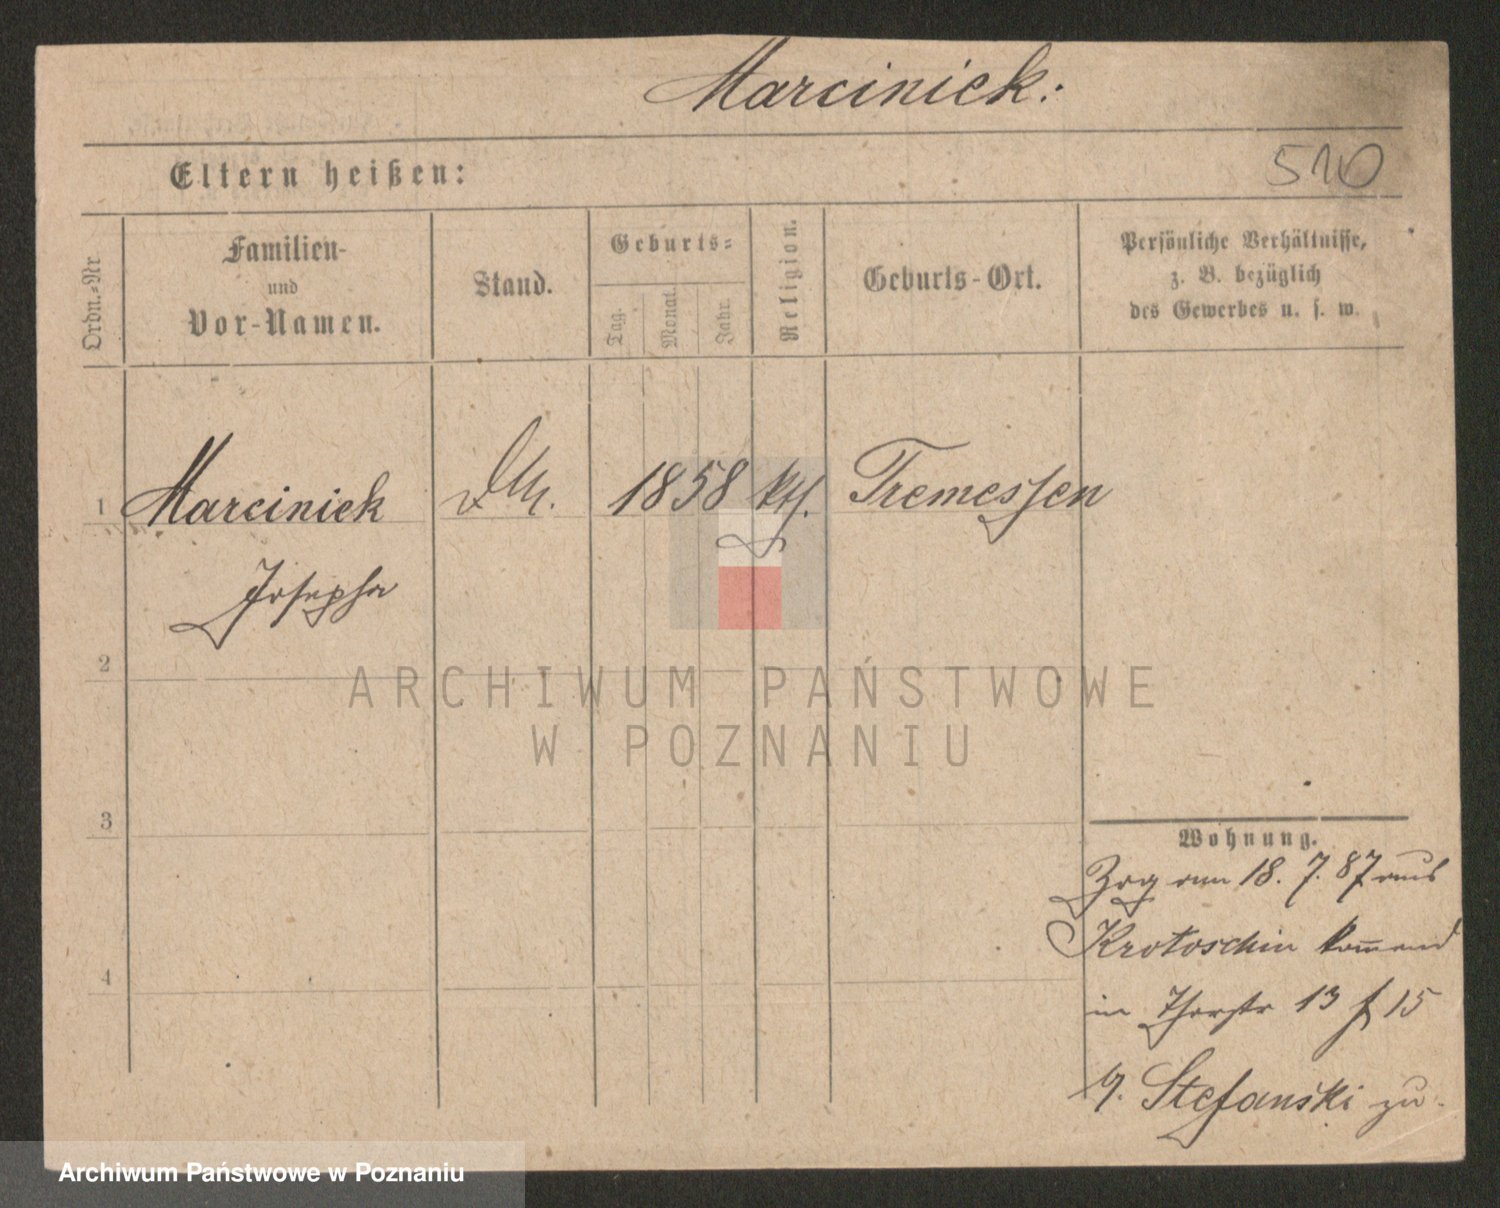 Marciniek:
Eltern heißen:
510
Ordn.-Nr.
Familien-
und
Vor-Namen.
Stand.
Geburts-
Tag.
Monat.
Jahr.
Religion.
Geburts-Ort.
Persönliche Verhältnisse,
z. B. bezüglich
des Gewerbes u. s. w.
1 Marciniek 1858 kth. Tremessen
Josepha
2
3
4
Wohnung.
Zog am 18. 7. 87 aus
Krotoschin kommend
in Thorstr 13 / 15
b. Stefanski zu.
ARCHIWUM PAŃSTWOWE
W POZNANIU
Archiwum Państwowe w Poznaniu